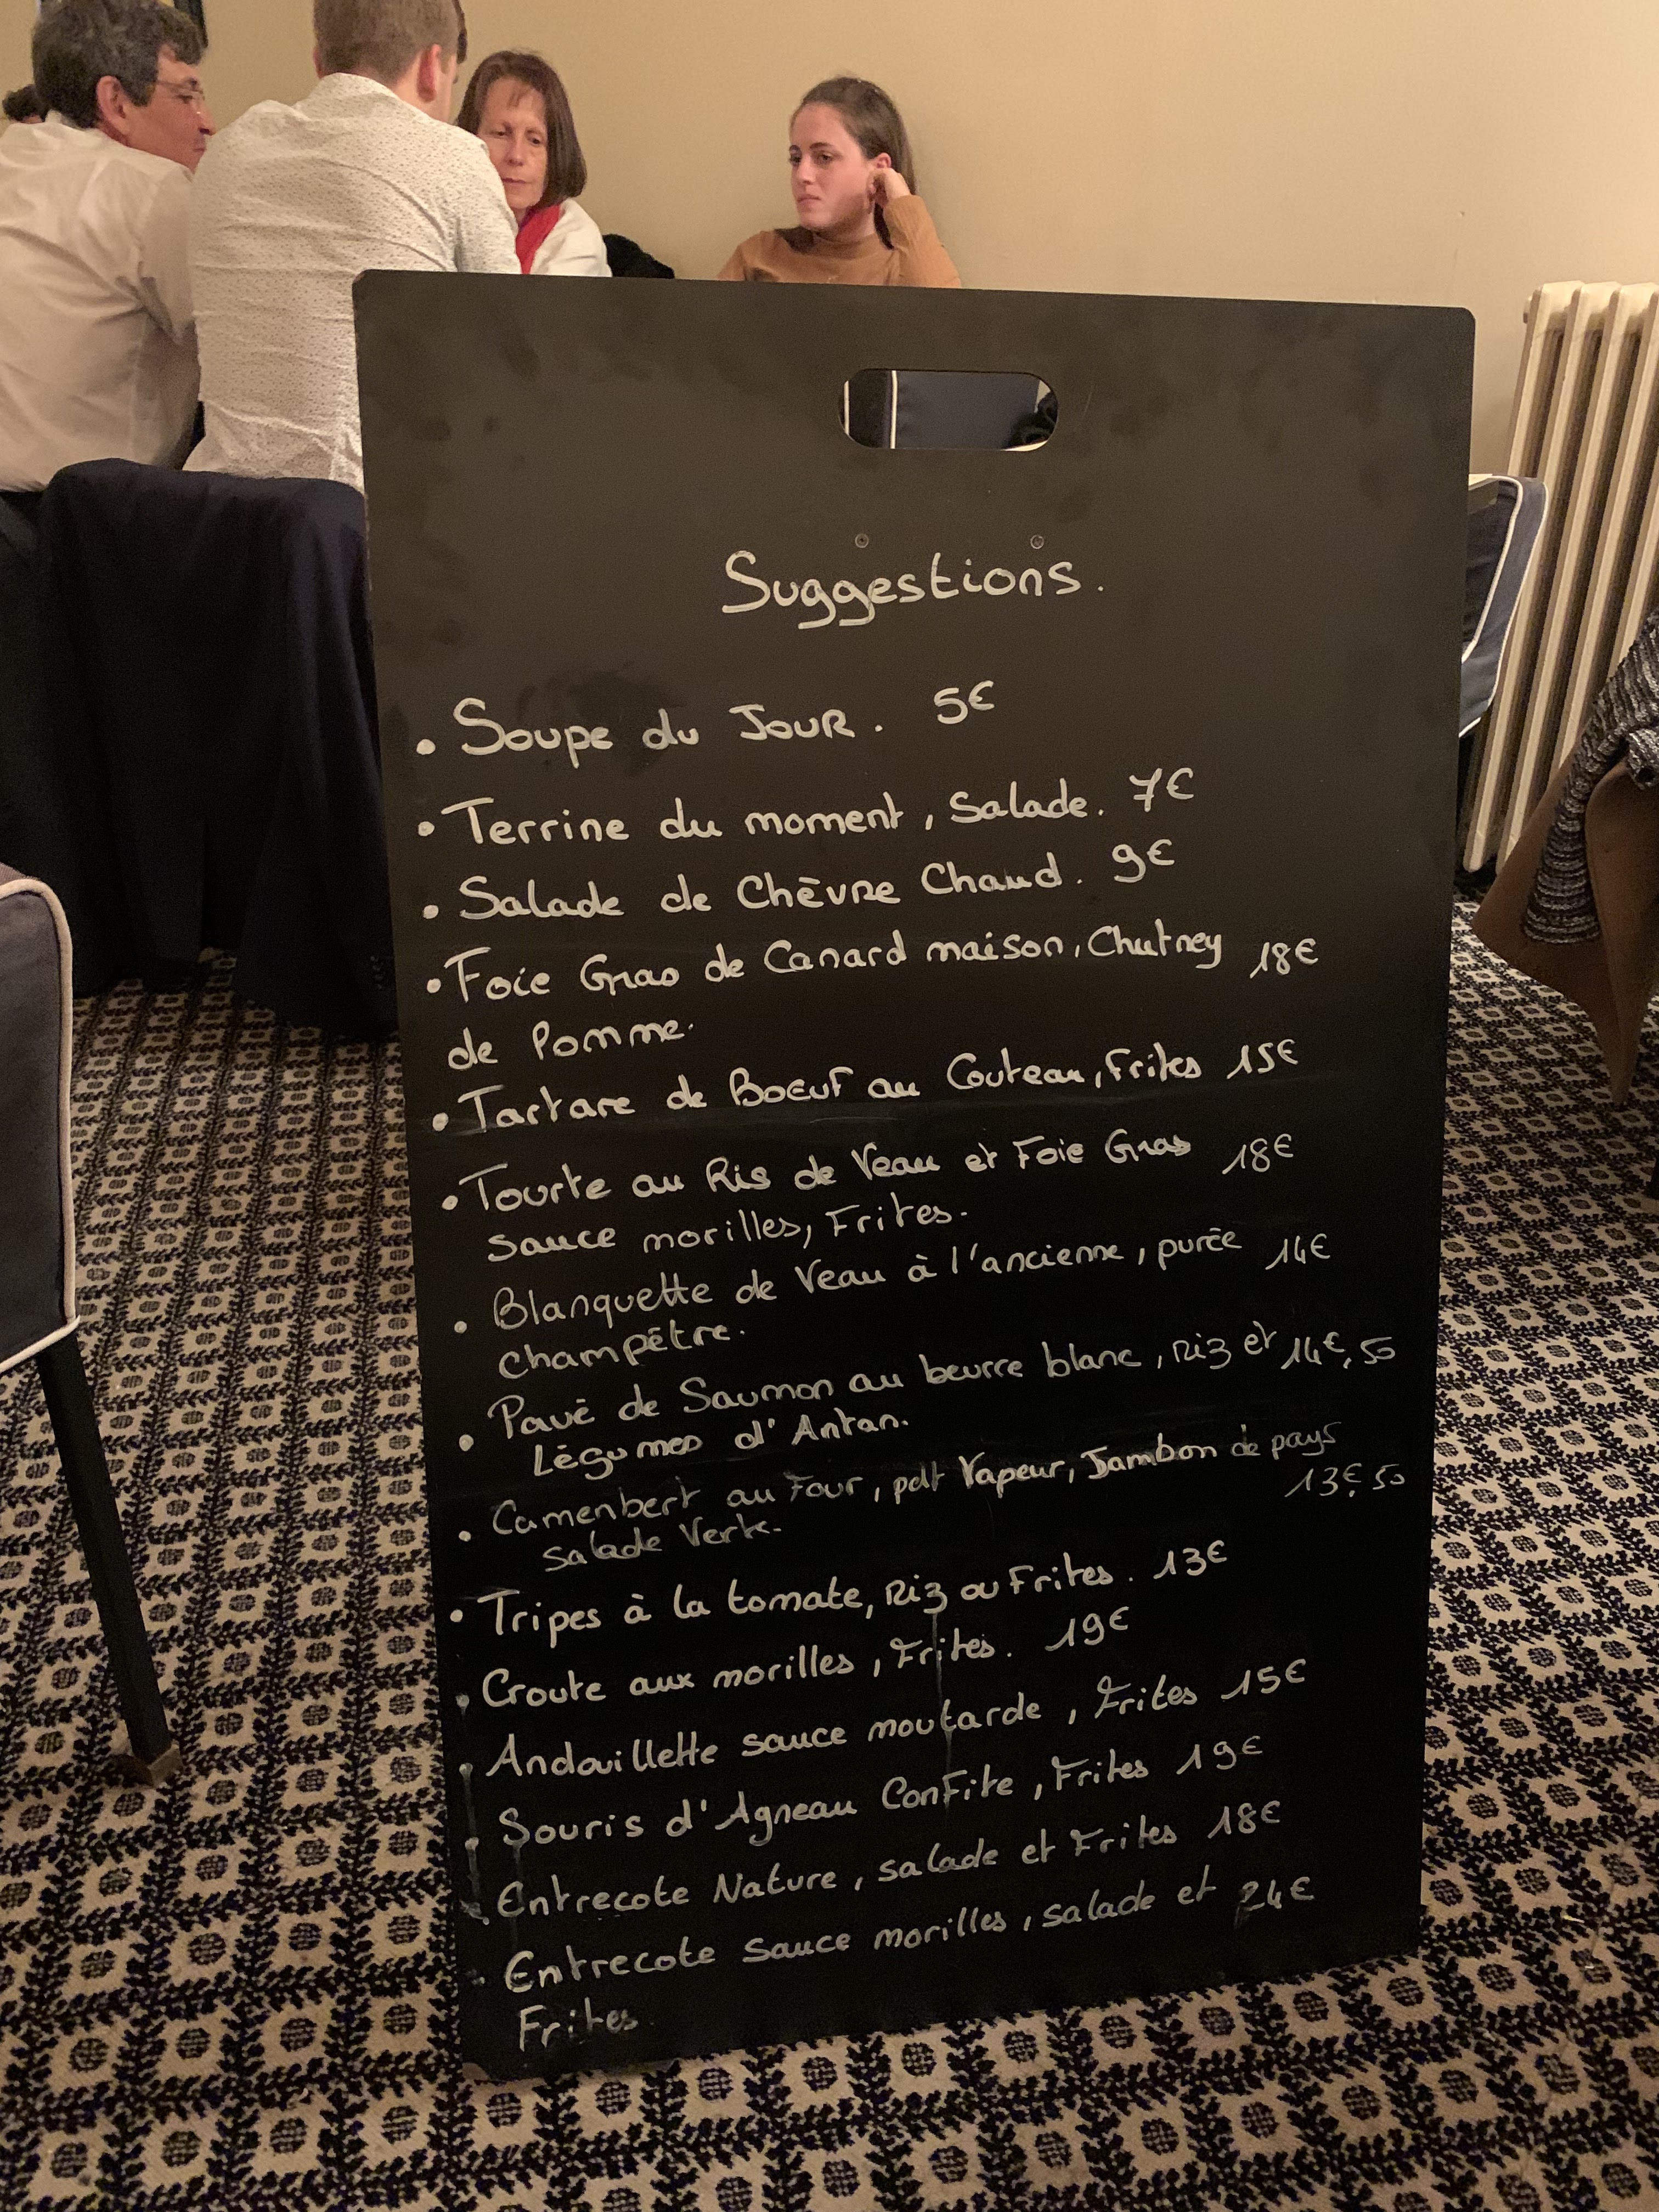 Suggestions.
• Soupe du JOUR. 5€
• Terrine du moment, Salade. 7€
• Salade de Chèvre Chaud. 9€
• Foie Gras de Canard maison, Chutney 18€
de Pomme.
• Tartare de Boeuf au Couteau, Frites 15€
• Tourte au Ris de Veau et Foie Gras 18€
sauce morilles, Frites.
• Blanquette de Veau à l'ancienne, purée 14€
champêtre.
• Pavé de Saumon au beurre blanc, riz et 14€,50
Légumes d'Antan.
• Camenbert au Four, pdt Vapeur, Jambon de pays
13€,50
salade Verte.
• Tripes à la tomate, Riz ou Frites. 13€
• Croute aux morilles, Frites. 19€
• Andouillette sauce moutarde, Frites 15€
• Souris d'Agneau Confite, Frites 19€
• Entrecote Nature, salade et Frites 18€
• Entrecote sauce morilles, salade et 24€
Frites.